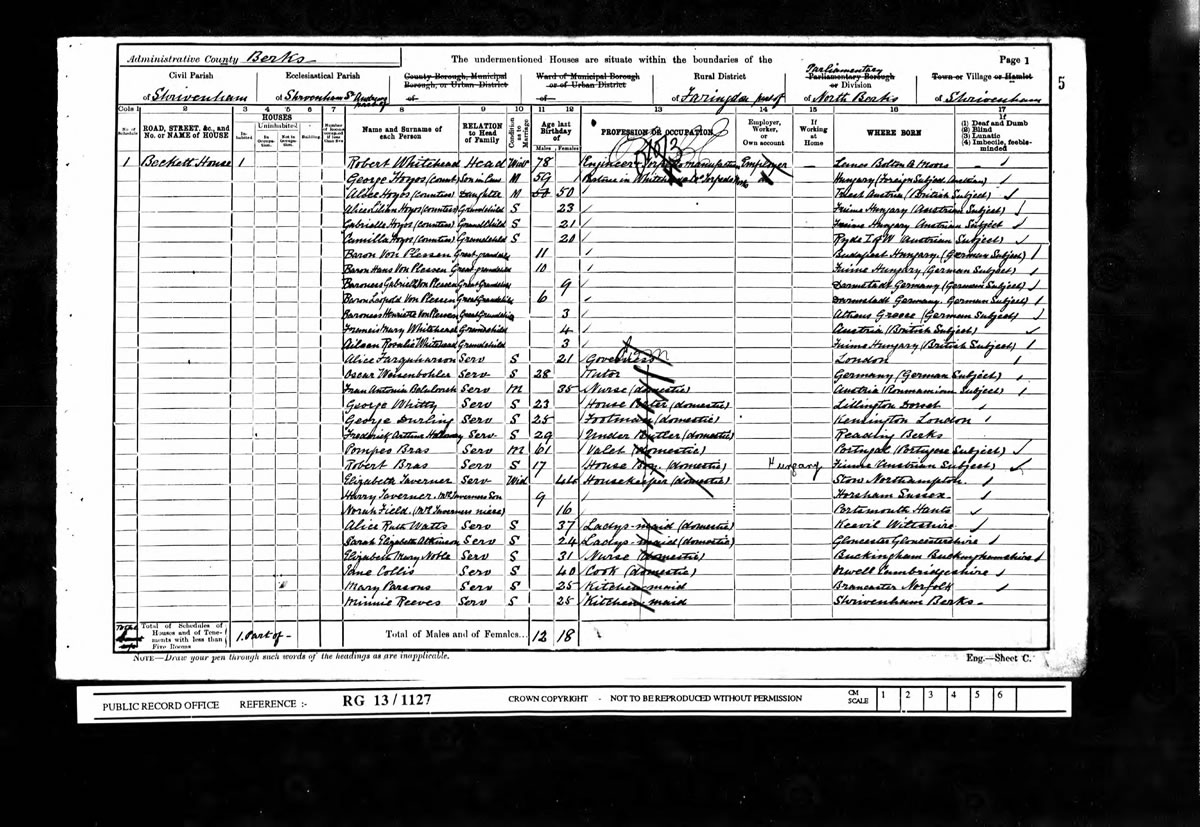 Administrative County Berks
The undermentioned Houses are situate within the boundaries of the
Page 1
5
Civil Parish
of Shrivenham
Ecclesiastical Parish
of Shrivenham St Andrew part of
County Borough, Municipal Borough, or Urban District
of
Ward of Municipal Borough or of Urban District
of
Rural District
of Faringdon part of
Parliamentary
Parliamentary Borough or Division
of North Berks
Town or Village or Hamlet
of Shrivenham
Cols 1 2 3 4 5 6 7 8 9 10 11 12 13 14 15 16 17
No. of Schedule
ROAD, STREET, &c., and No. or NAME of HOUSE
HOUSES
Inhabited
Uninhabited
In Occupation.
Not in Occupation.
Building
Number of Rooms occupied if less than five
Name and Surname of each Person
RELATION to Head of Family
Condition as to Marriage
Age last Birthday of
Males
Females
PROFESSION OR OCCUPATION
Employer, Worker, or Own account
If Working at Home
WHERE BORN
If
(1) Deaf and Dumb
(2) Blind
(3) Lunatic
(4) Imbecile, feeble-minded
1 Beckett House 1 Robert Whitehead Head Widr 78 Engineer & Torpedo manufacturer Employer Lancs Bolton le Moors
George Hoyos (Count) Son in Law M 59 Partner in Whitehead & Co Torpedo Works do Hungary (Foreign Subject Austrian)
Alice Hoyos (Countess) Daughter M 50 Austria (British Subject)
Alice Lilian Hoyos (Countess) Grandchild S 23 Fiume Hungary (Austrian Subject)
Gabrielle Hoyos (Countess) Grandchild S 21 Fiume Hungary Austrian Subject
Camilla Hoyos (Countess) Grandchild S 20 Ryde I of W (Austrian Subject)
Baron Von Plessen Great grandchild 11 Budapest Hungary (German Subject)
Baron Hans Von Plessen Great grandchild 10 Fiume Hungary (German Subject)
Baroness Gabrielle Von Plessen Great Grandchild 9 Darmstadt Germany (German Subject)
Baron Leopold Von Plessen Great Grandchild 6 Darmstadt Germany. German Subject)
Baroness Henriette Von Plessen Great Grandchild 3 Athens Greece (German Subject)
Francis Mary Whitehead Grandchild 4 Austria (British Subject)
Aileen Rosalie Whitehead Grandchild 3 Fiume Hungary (British Subject)
Alice Farquharson Serv S 21 Governess London
Oscar Weisenbohler Serv S 28 Tutor Germany (German Subject)
Frau Antonia Serv M 35 Nurse (domestic) Austria (Roumanian Subject)
George Whitty Serv S 23 House Porter (domestic) Lillington Dorset
George Durling Serv S 25 Footman (domestic) Kennington London
Frederick Arthur Holloway Serv S 29 Under Butler (domestic) Reading Berks
Pompes Bras Serv M 61 Valet (domestic) Portugal (Portugese Subject)
Robert Bras Serv S 17 House Boy (domestic) Hungary Fiume (Austrian Subject)
Elizabeth Taverner Serv Wid 44 Housekeeper (domestic) Stow Northampton
Harry Taverner. Mrs Taverners Son 9 Horsham Sussex
Norah Field. (Mrs Taverners niece) 16 Portsmouth Hants
Alice Ruth Watts Serv S 37 Ladys-maid (domestic) Keevil Wiltshire
Sarah Elizabeth Atkinson Serv S 24 Ladys-maid (domestic) Gloucester Gloucestershire
Elizabeth Mary Noble Serv S 31 Nurse (domestic) Buckingham Buckinghamshire
Jane Collis Serv S 40 Cook (domestic) Orwell Cambridgeshire
Mary Parsons Serv S 25 Kitchen-maid Brancaster Norfolk
Minnie Reeves Serv S 25 Kitchen-maid Shrivenham Berks
Total of Schedules of Houses and of Tenements with less than Five Rooms
1. Part of -
Total of Males and of Females... 12 18
NOTE—Draw your pen through such words of the headings as are inapplicable.
Eng.—Sheet C.
PUBLIC RECORD OFFICE REFERENCE :- RG 13/1127 CROWN COPYRIGHT - NOT TO BE REPRODUCED WITHOUT PERMISSION CM SCALE 1 2 3 4 5 6